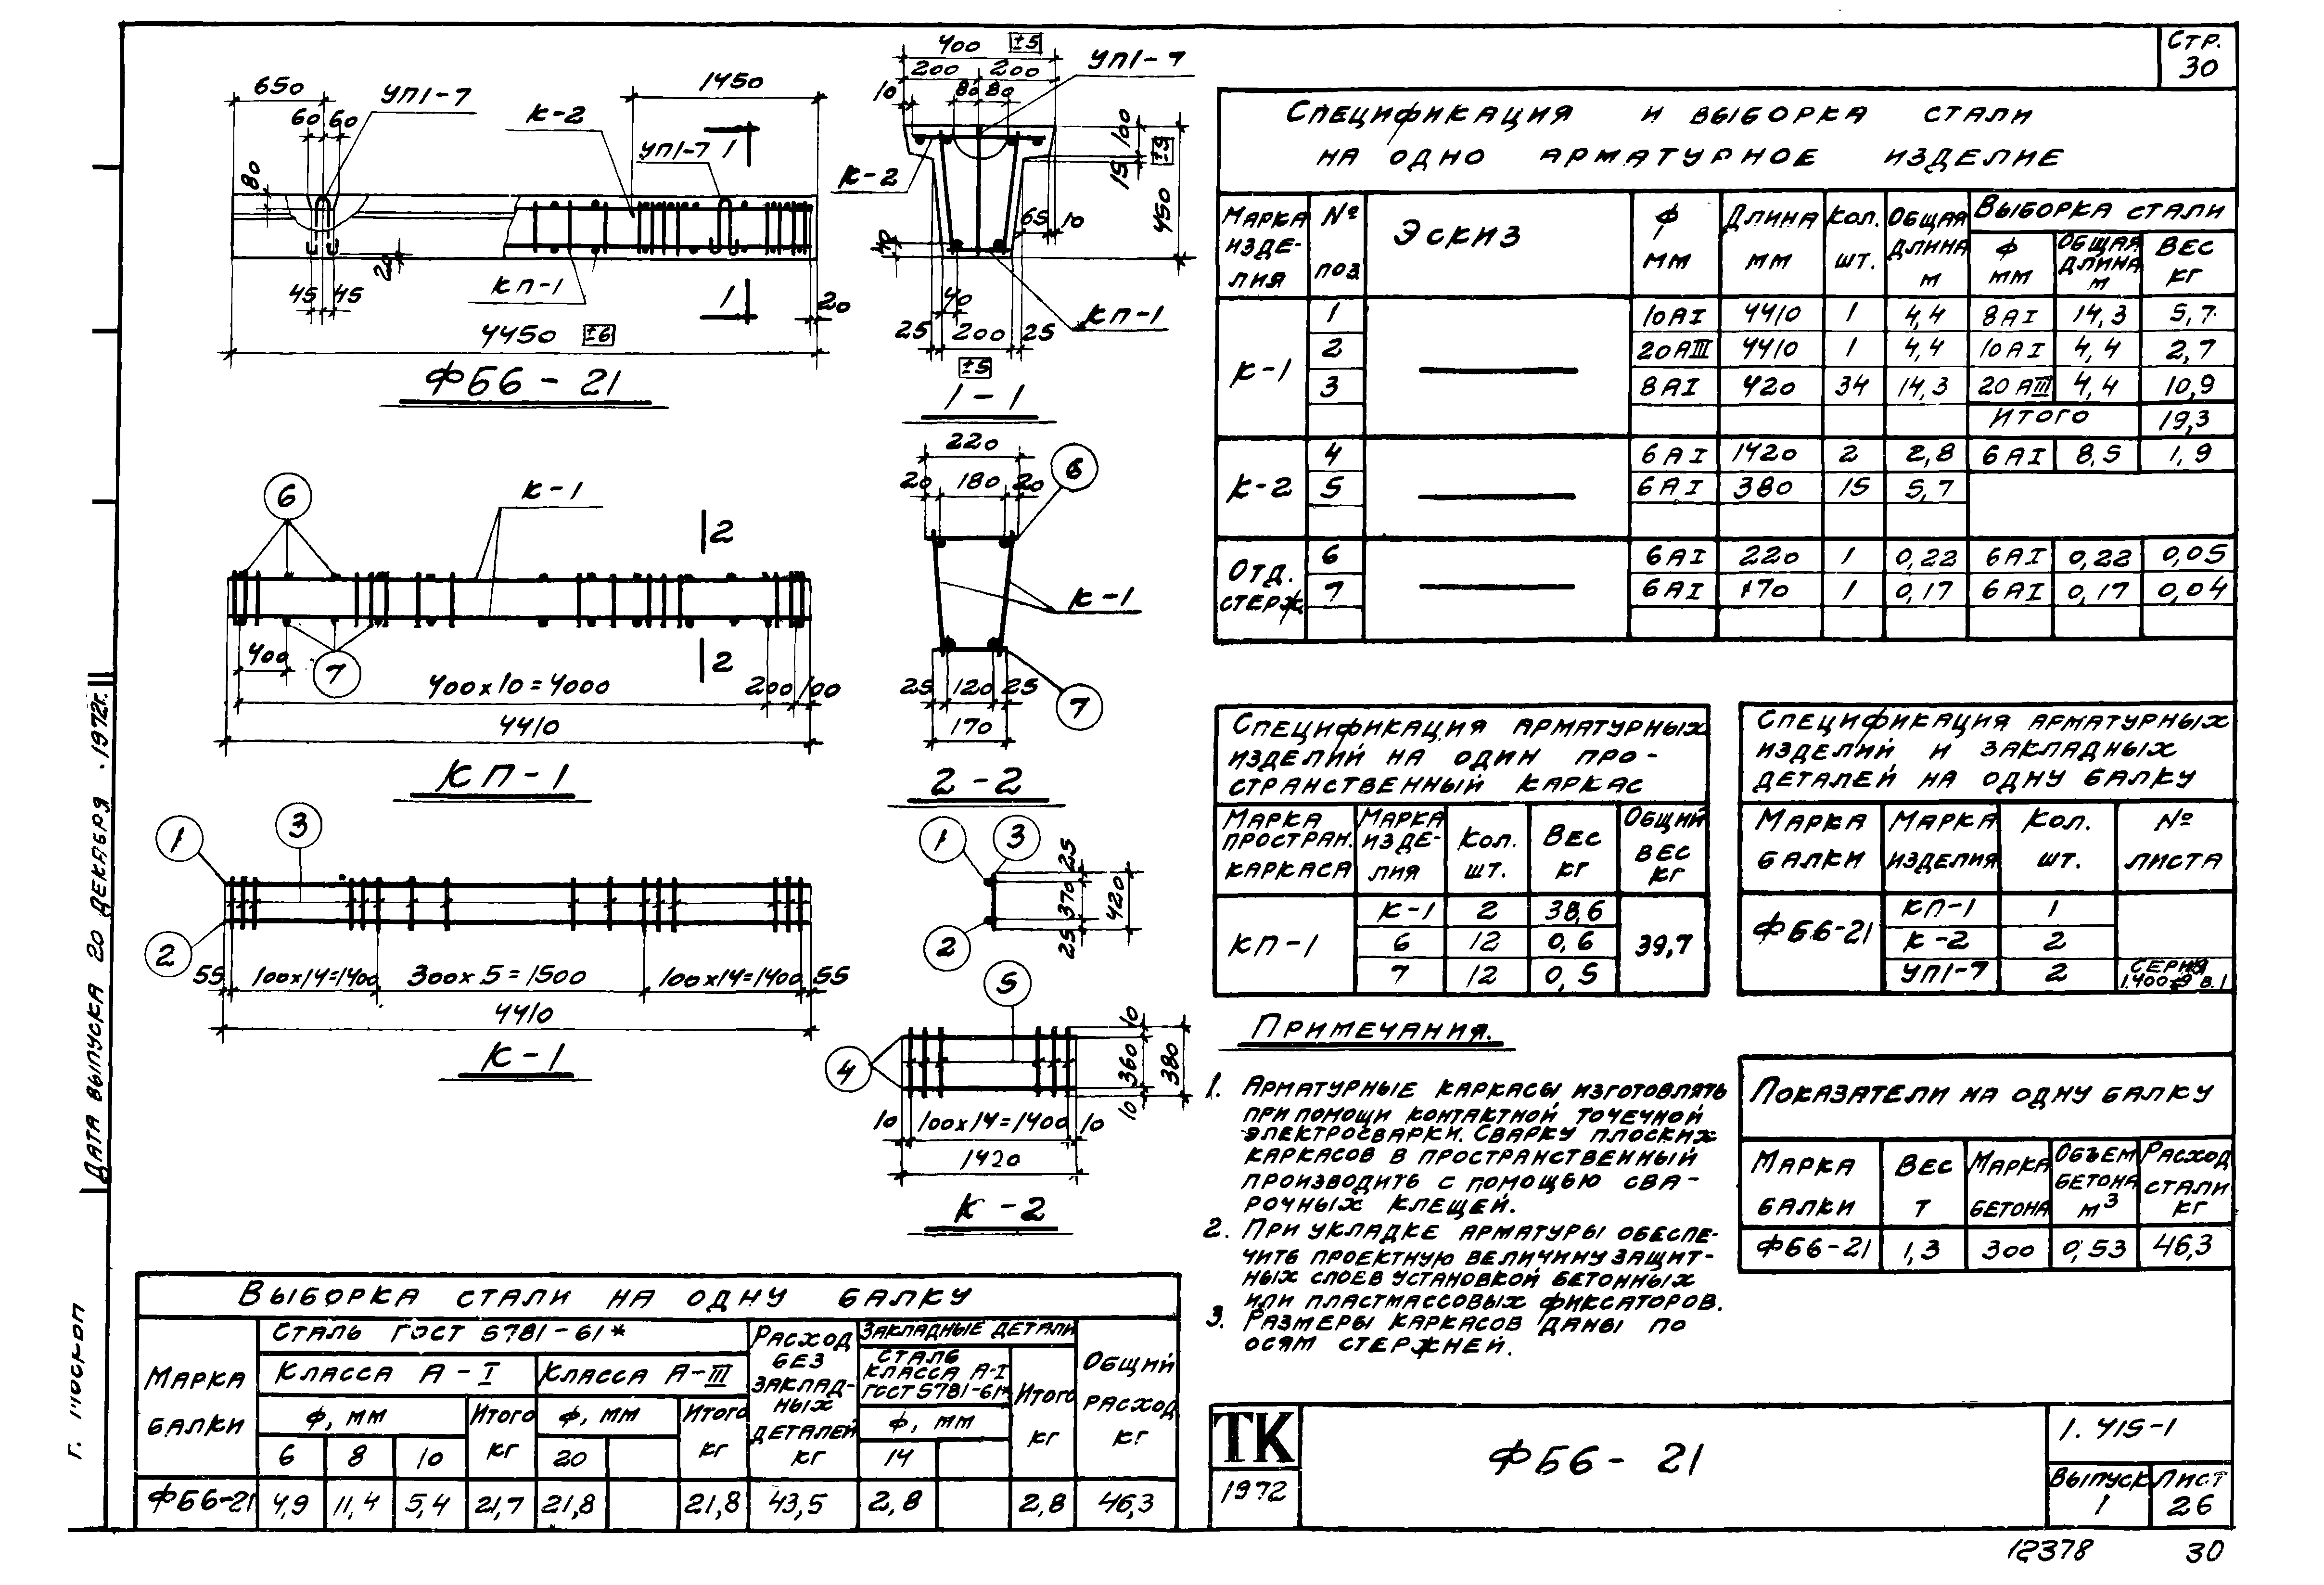 Стр.
30
650
УП1-7
К-2
1450
60 60
УП1-7
1
80
45 45
20
КП-1
1
20
4450 ±6
ФБ6-21
400 ±5
УП1-7
200 200
10
80 80
100
±5
15
450
К-2
65 10
40
40
КП-1
25 200 25
±5
1-1
6
К-1
2
400
7
2
400х10=4000
200 100
4410
КП-1
220
20 180 20
6
К-1
25 120 25
170
7
2-2
1
3
2
55 100х14=1400 300х5=1500 100х14=1400 55
4410
К-1
1
3
2
25
370
25
420
5
4
10
360
10
380
10 100х14=1400 10
1420
К-2
Спецификация и выборка стали
на одно арматурное изделие
Марка изделия № поз Эскиз Ф мм Длина мм Кол. шт. Общая длина м Выборка стали
Ф мм Общая длина м Вес кг
К-1 1 10АI 4410 1 4,4 8АI 14,3 5,7
2 20АIII 4410 1 4,4 10АI 4,4 2,7
3 8АI 420 34 14,3 20АIII 4,4 10,9
Итого 19,3
К-2 4 6АI 1420 2 2,8 6АI 8,5 1,9
5 6АI 380 15 5,7
Отд. стерж 6 6АI 220 1 0,22 6АI 0,22 0,05
7 6АI 170 1 0,17 6АI 0,17 0,04
Спецификация арматурных
изделий на один про-
странственный каркас
Марка простран. каркаса Марка изделия Кол. шт. Вес кг Общий вес кг
КП-1 К-1 2 38,6 39,7
6 12 0,6
7 12 0,5
Спецификация арматурных
изделий и закладных
деталей на одну балку
Марка балки Марка изделия Кол. шт. № листа
ФБ6-21 КП-1 1
К-2 2
УП1-7 2 серия 1.400-9 в.1
Примечания.
1. Арматурные каркасы изготовлять
при помощи контактной точечной
электросварки. Сварку плоских
каркасов в пространственный
производить с помощью сва-
рочных клещей.
2. При укладке арматуры обеспе-
чить проектную величину защит-
ных слоев установкой бетонных
или пластмассовых фиксаторов.
3. Размеры каркасов даны по
осям стержней.
Показатели на одну балку
Марка балки Вес т Марка бетона Объем бетона м³ Расход стали кг
ФБ6-21 1,3 300 0,53 46,3
Выборка стали на одну балку
Марка балки Сталь ГОСТ 5781-61* Расход без закладных деталей кг Закладные детали Общий расход кг
Класса А-I Класса А-III Сталь класса А-I ГОСТ 5781-61* Итого кг
ф, мм Итого кг ф, мм Итого кг ф, мм
6 8 10 20 14
ФБ6-21 4,9 11,4 5,4 21,7 21,8 21,8 43,5 2,8 2,8 46,3
ТК
1972
ФБ6-21
1.415-1
Выпуск Лист
1 26
12378 30
Дата выпуска 20 декабря 1972г.